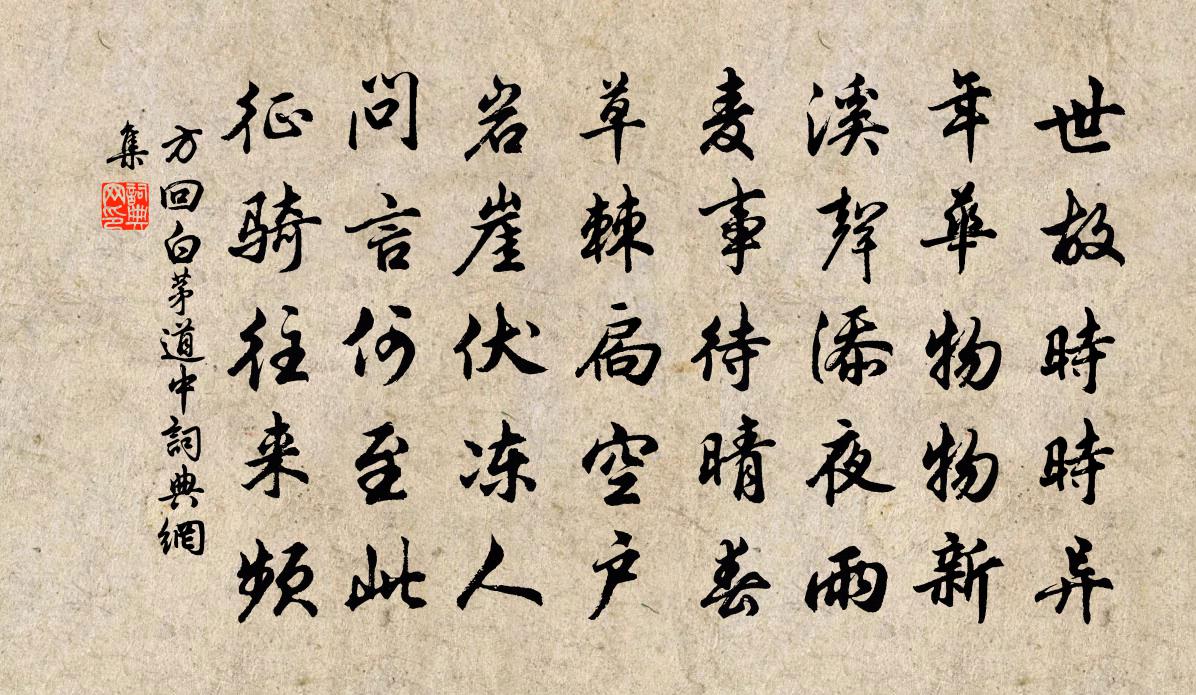 世故時時异
年華物物新
溪聲添夜雨
麦事待晴春
草棘扃空户
岩崖伏冻人
問言何至此
征骑往来频
方回白茅道中詞典網
集
詞典网印